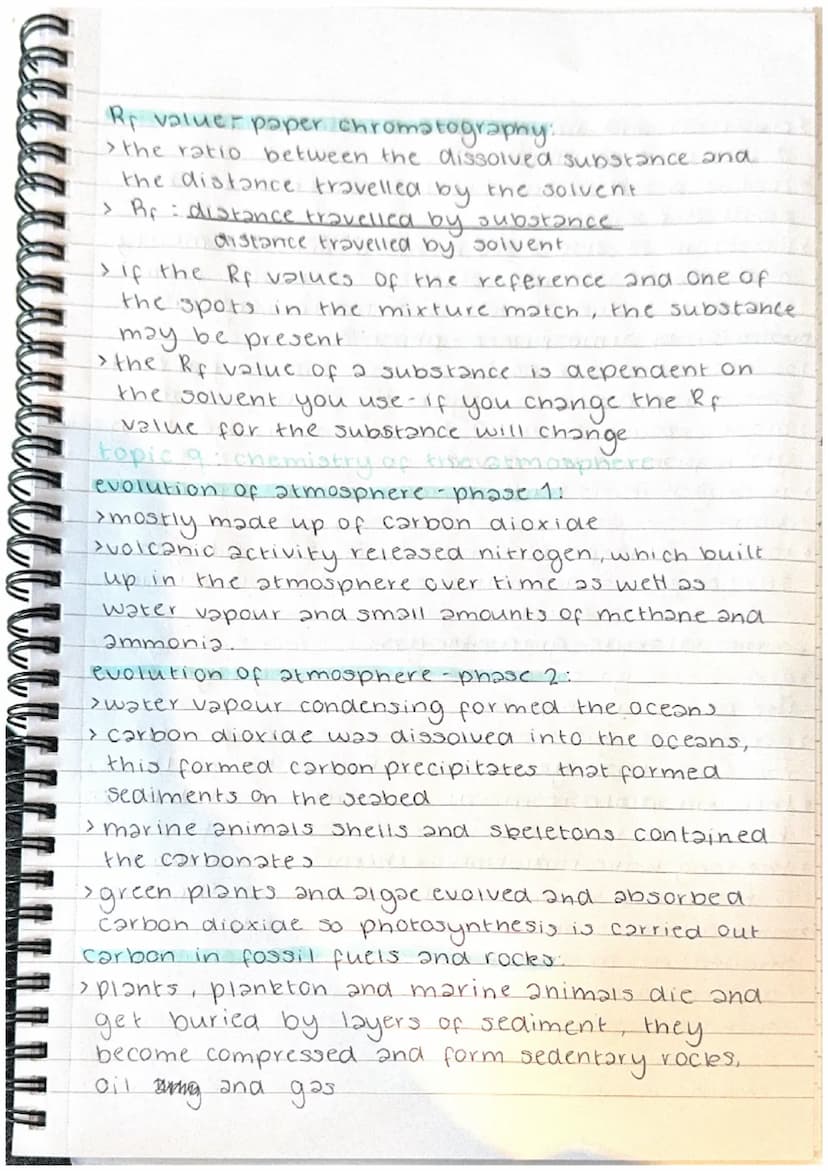 Rf value - paper chromatography:
> the ratio between the dissolved substance and
the distance travelled by the solvent
> Rf : distance travelled by substance
distance travelled by solvent
> if the Rf values of the reference and one of
the spots in the mixture match, the substance
may be present
> the Rf value of a substance is dependent on
the solvent you use - if you change the Rf
value for the substance will change
topic 9 : chemistry of the atmosphere
evolution of atmosphere - phase 1:
> mostly made up of carbon dioxide
> volcanic activity released nitrogen, which built
up in the atmosphere over time as well as
water vapour and small amounts of methane and
ammonia.
evolution of atmosphere - phase 2:
> water vapour condensing formed the oceans
> carbon dioxide was dissolved into the oceans,
this formed carbon precipitates that formed
sediments on the seabed
> marine animals shells and skeletons contained
the carbonates
> green plants and algae evolved and absorbed
carbon dioxide so photosynthesis is carried out
carbon in fossil fuels and rocks:
> plants, plankton and marine animals die and
get buried by layers of sediment, they
become compressed and form sedentary rocks,
oil and gas